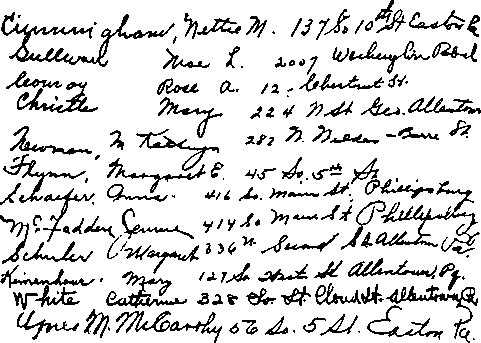 Cunningham, Nettie M. 137 So 10th St Easton Pa
Sullivan Mae L. 2007 Washington Boul
Conroy Rose A. 12 Chestnut St.
Christle Mary 224 N St Geo. Allentown
Newman, M Kathryn 282 N. Wilkes-Barre St.
Flynn, Margaret E. 45 So. 5th St
Schaefer, Anna. 416 So. Main St. Phillipsburg
McFadden 414 So Main St Phillipsburg
Schuler Margaret 336 N Second St Allentown Pa.
Mary 127 So St Allentown, Pa.
White Catherine 328 So. St. Cloud St. Allentown, Pa.
Agnes M. McCarthy 56 So. 5 St. Easton Pa.